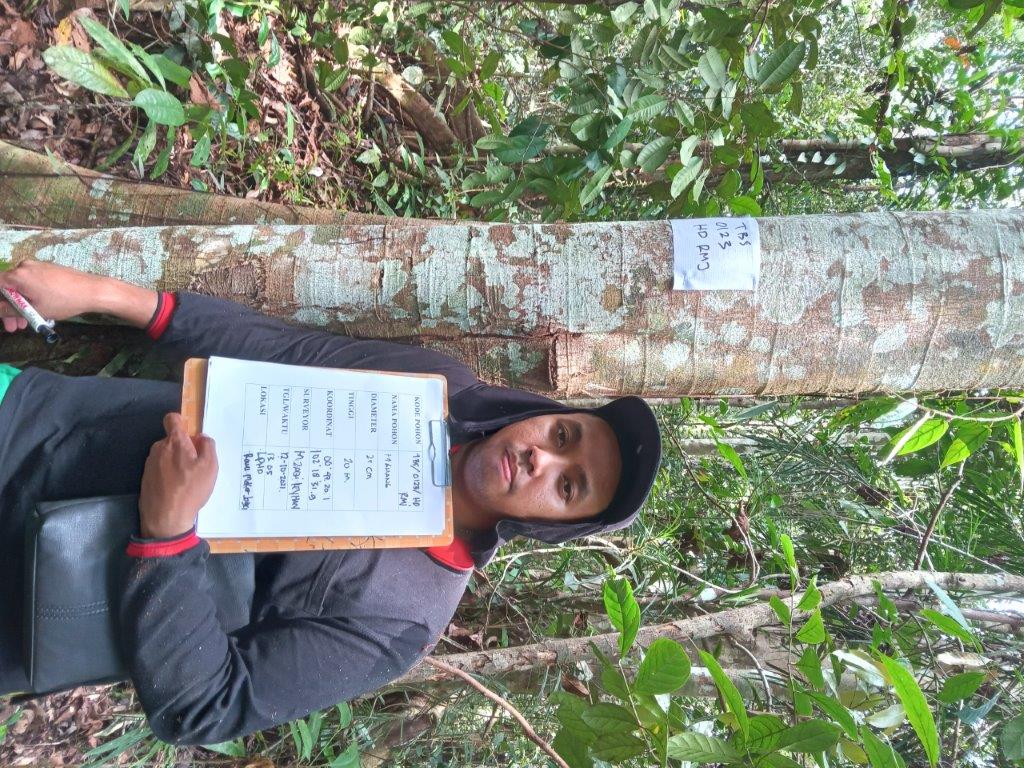 TBS
0123
HD RMJ
KODE POHON TBS/0123/HD
RMJ
NAMA POHON
DIAMETER 25 cm
TINGGI 20 m
KOORDINAT 00° 42 20.1
102° 18 31.9
SURVEYOR M.
TGL/WAKTU 12-10-2021.
13.05
LOKASI LPHD
Rawa Mekar Jaya